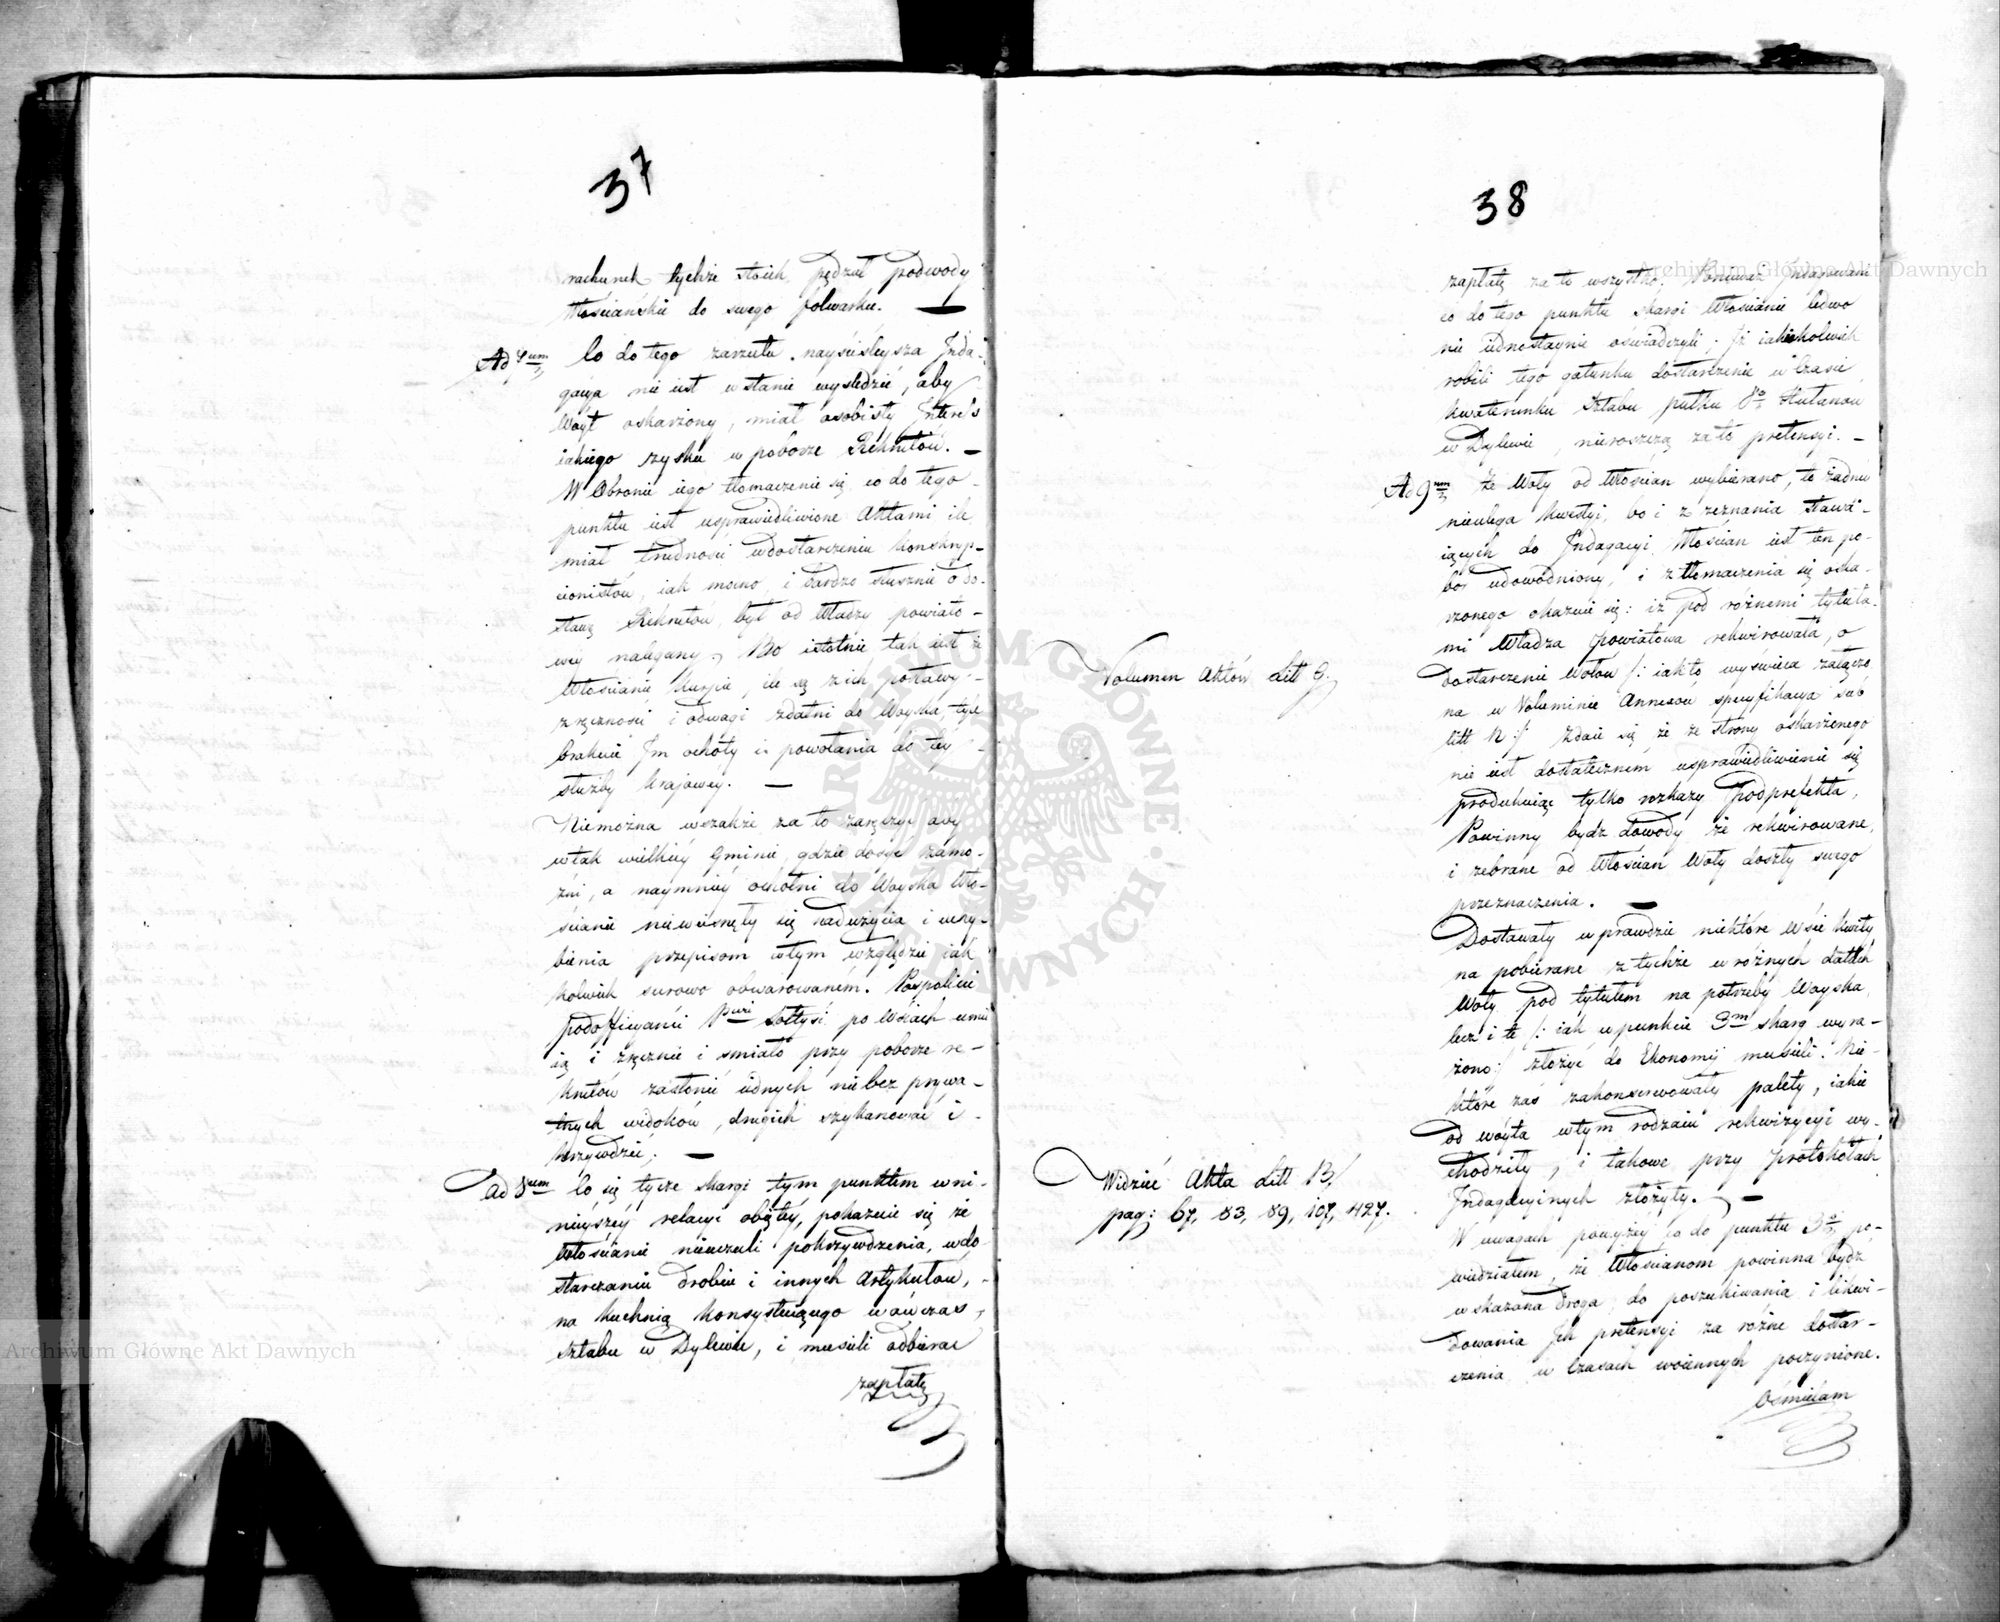 37
rachunek tychże stoiek, pędzał podwody
Włościańskie do swego folwarku. —
Ad 7um Co do tego zarzutu nayściśleysza Inda-
gacya nie iest w stanie wyśledzić, aby
Woyt oskarżony, miał osobisty Interes
iakiego zysku w poborze Rekrutów. —
W Obronie iego tłomaczenie się co do tego
punktu iest usprawiedliwione Aktami ile
miał trudności w dostarczeniu konskryp-
cionistów, iak mocno, i bardzo słusznie o do-
stawę Rekrutów, był od Władzy powiato-
wey nalegany. Bo istotnie tak iest że
Włościanie Kurpie, ile są z ich postawy
zręczności i odwagi zdatni do Woyska, tyle
brakuie Im ochoty i powołania do tey
służby kraiowey. —
Niemożna wszakże za to zaręczyć aby
w tak wielkiey Gminie, gdzie dosyć zamo-
żni, a naymniey ochotni do Woyska Wło-
ścianie niewcisnęły się nadużycia i uchy-
bienia przepisom w tym względzie iak-
kolwiek surowo obwarowanem. Pospolicie
podofficyanci Sołtysi po Wsiach umie
ią i zręcznie i śmiało przy poborze re-
krutów zasłonić iednych nie bez prywa-
tnych widoków, drugich szykanować i
krzywdzić. —
Ad 8um Co się tycze skargi tym punktem w ni-
nieyszey relacyi obiętey, pokazuie się że
Włościanie nieuczuli pokrzywdzenia, w do-
starczaniu drobiu i innych Artykułów,
na kuchnią konsystuiącego wówczas
sztabu w Dylewie, i musieli odbierać
zapłatę
38
zapłatę za to wszystko. Ponieważ
co do tego punktu skargi Włościanie ledwo
nie iednostaynie oświadczyli; Iż iakiekolwiek
robili tego gatunku dostarczenie w Czasie
kwaterunku Sztabu pułku 8o Hułanów
w Dylewie, nieroszczą za to pretensyi. —
Ad 9um Że Woły od Włościan wybierano, to żadney
nieulega kwestyi, bo i z zeznania stawa-
iących do Indagacyi Włościan iest ten po-
bor udowodniony, i z tłomaczenia się oska-
rzonego okazuie się: iż pod różnemi tytuła-
mi Władza powiatowa rekwirowała, o
Volumen Aktów Litt G.
dostarczenie Wołow /: iak to wyświeca załączo
na w Voluminie Annexów specyfikacya sub
litt N :/ Zdaie się że ze strony oskarżonego
nie iest dostatecznem usprawiedliwienie się
produkuiąc tylko rozkazy Podprefekta,
Powinny bydz dowody że rekwirowane,
i zebrane od Włościan Woły doszły swego
przeznaczenia. —
Dostawały w prawdzie niektóre Wsie kwity
na pobierane z tychże w różnych datach
Woły pod tytułem na potrzeby Woyska,
lecz i te /: iak w punkcie 3m skarg wyra-
żono :/ złożyć do Ekonomij musieli. Nie-
które zaś zakonserwowały palety, iakie
od wóyta w tym rodzaiu rekwizycyi wy-
Widzieć Akta Litt B/
chodziły, i takowe przy protokołach
pag: 67, 83, 89, 107, 427.
Indagacyinych złożyły. —
W uwagach powyżey co do punktu 3o po-
wiedziałem, że Włościanom powinna bydz
wskazana droga, do poszukiwania i likwi-
dowania Ich pretensyi za różne dostar-
czenia w Czasach woiennych poczynione.
Ośmielam
Archiwum Główne Akt Dawnych
Archiwum Główne Akt Dawnych
ARCHIWUM GŁÓWNE AKT DAWNYCH